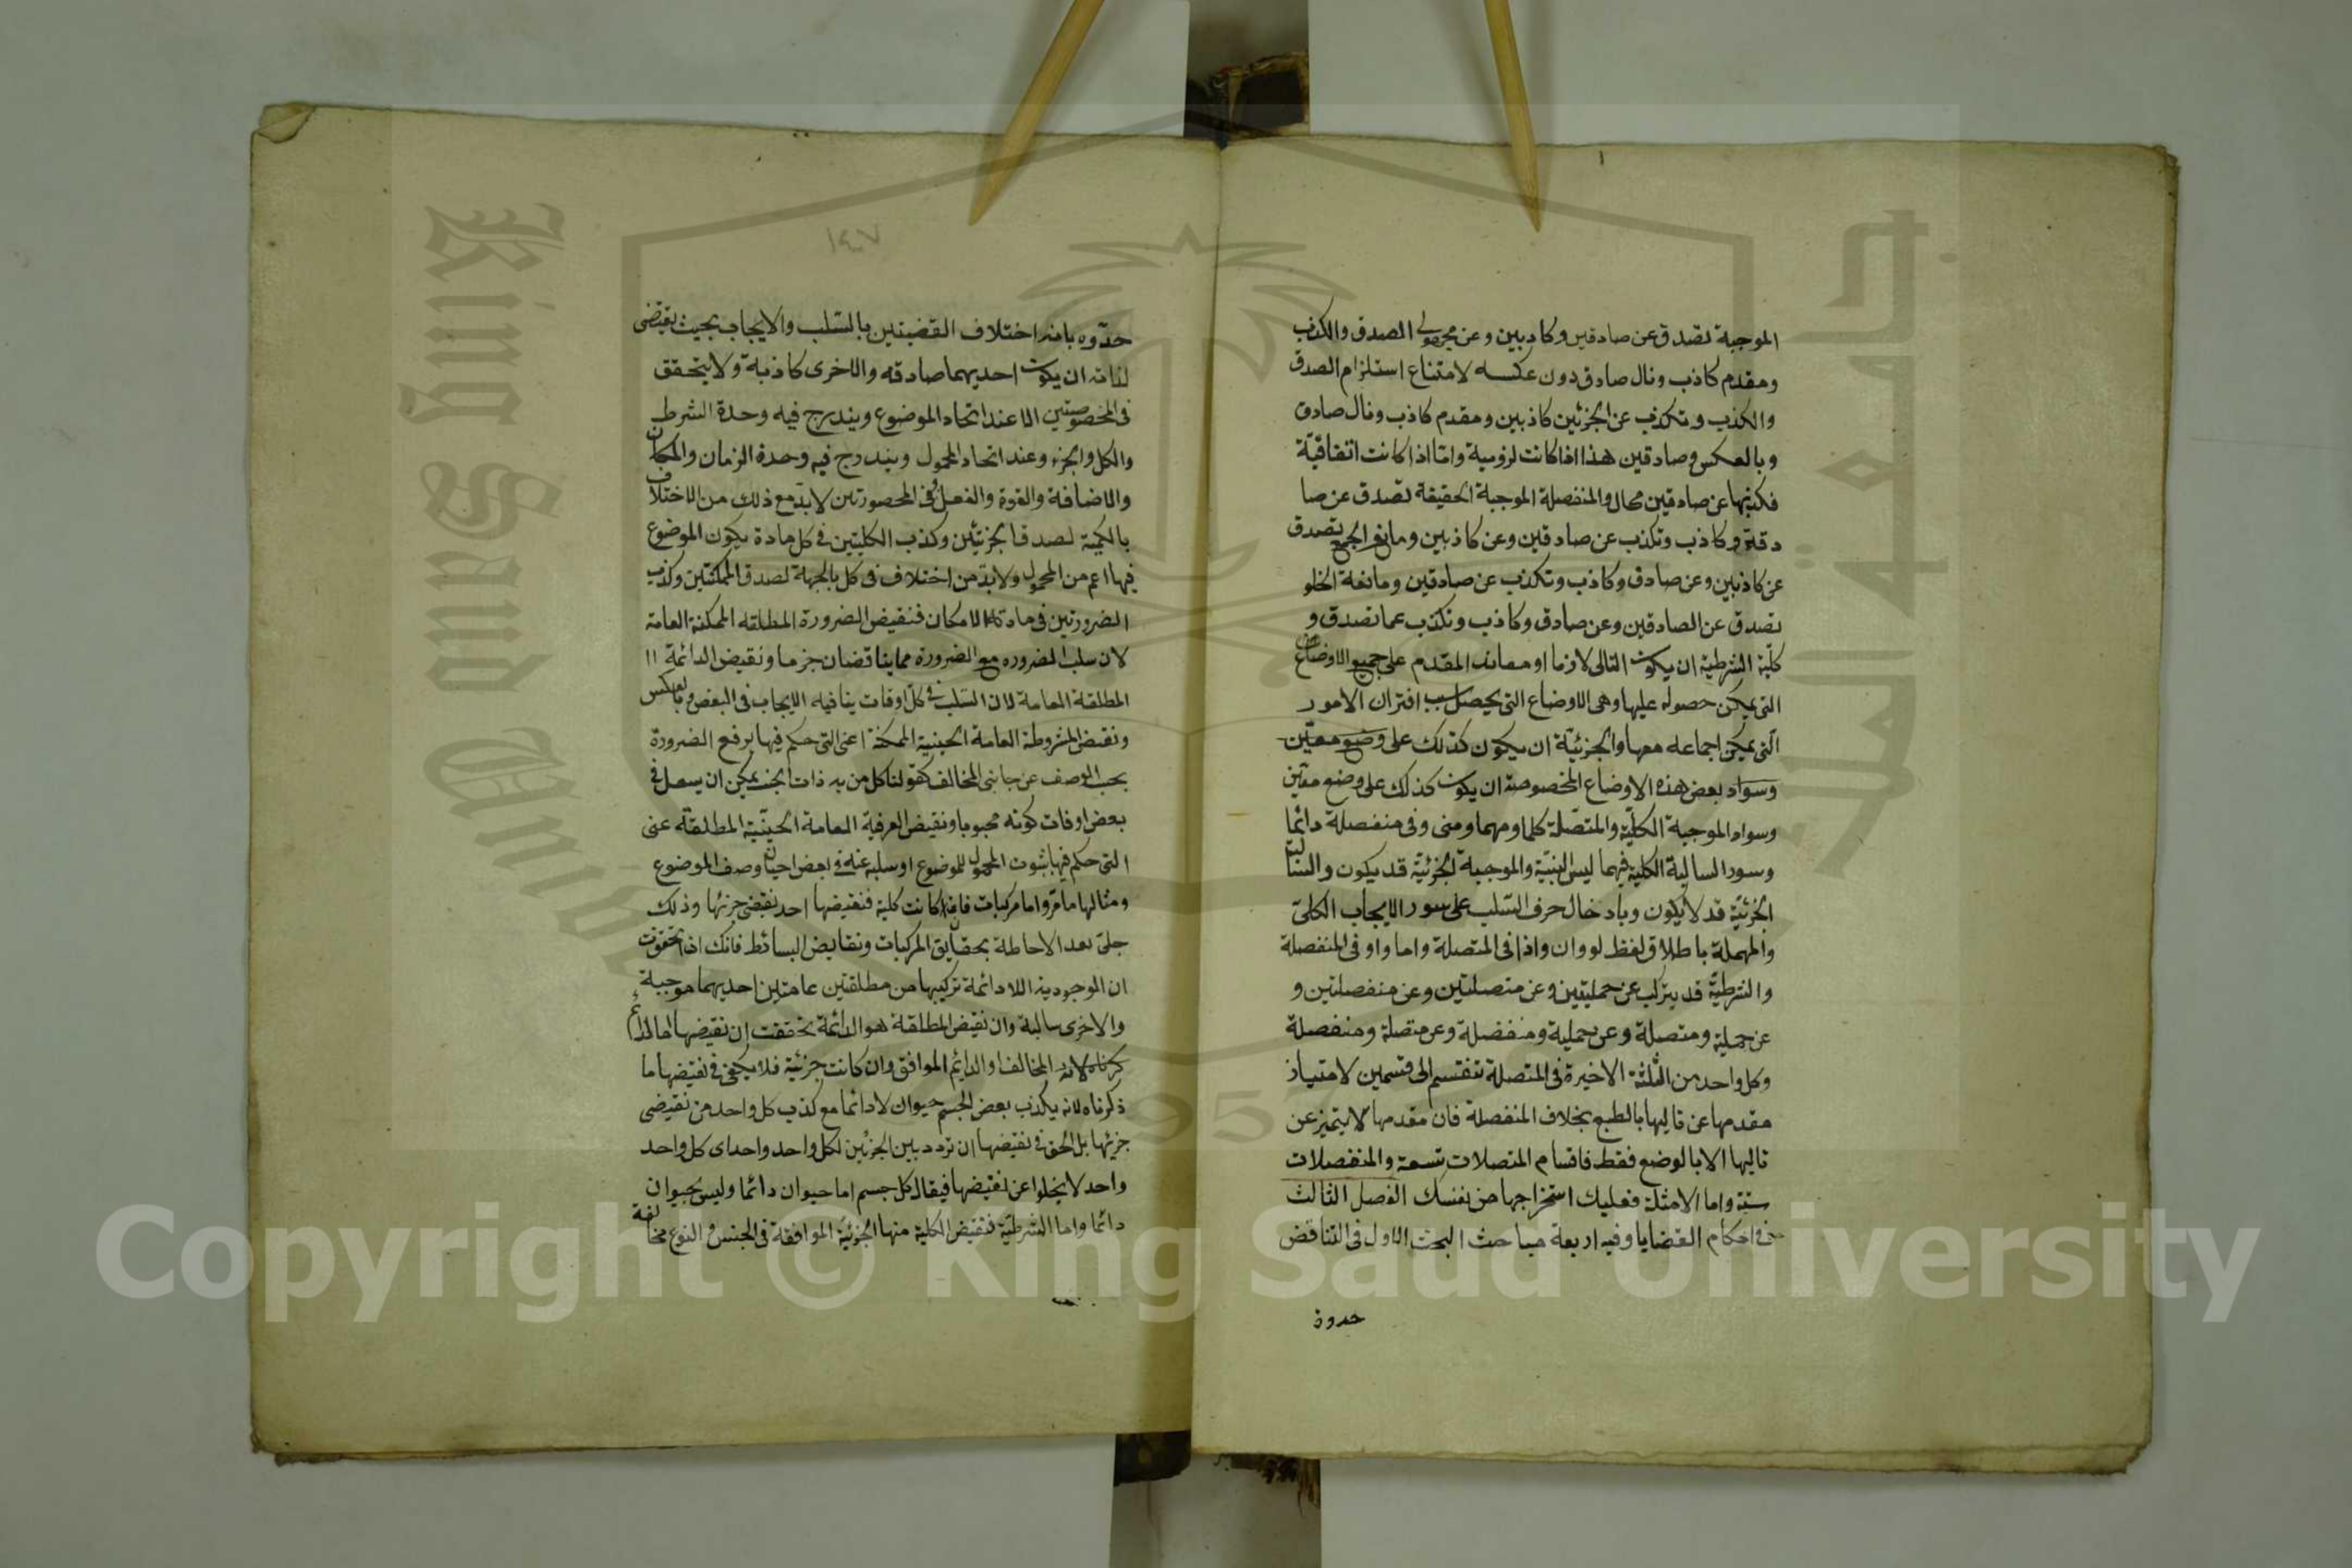 الموجبة تصدق عن صادقين وكاذبين وعن مجهولي الصدق والكذب
ومقدم كاذب وتال صادق دون عكسه لامتناع استلزام الصدق
والكذب وتكذب عن الجزئين كاذبين ومقدم كاذب وتال صادق
وبالعكس وصادقين هذا اذا كانت لزومية واما اذا كانت اتفاقية
فكذبها عن صادقين محال والمنفصلة الموجبة الحقيقة تصدق عن صا
دق وكاذب وتكذب عن صادقين وعن كاذبين ومانع الجمع تصدق
عن كاذبين وعن صادق وكاذب وتكذب عن صادقين ومانعة الخلو
تصدق عن الصادقين وعن صادق وكاذب وتكذب عما تصدق و
كلية الشرطية ان يكون التالى لازما او معاندا المقدم على جميع الاوضاع
التى يمكن حصوله عليها وهى الاوضاع التى يحصل بسبب اقتران الامور
التى يمكن اجماعه معها والجزئية ان يكون كذلك على وضع معين
وسواد بعض هذه الاوضاع المخصوصة ان يكون كذلك على وضع معين
وسواد الموجبة الكلية والمتصلة كلما ومهما ومتى وفى منفصلة دائما
وسور السالبة الكلية فيهما ليس البتة والموجبة الجزئية قد يكون والسالبة
الجزئية قد لا يكون وبادخال حرف السلب على سور الايجاب الكلى
والمهملة باطلاق لفظ لو وان واذا فى المتصلة واما واو فى المنفصلة
والشرطية قد يتركب عن حمليتين وعن متصلتين وعن منفصلتين و
عن حملية ومتصلة وعن حملية ومنفصلة وعن متصلة ومنفصلة
وكل واحد من الثلثة الاخيرة فى المتصلة تنقسم الى قسمين لامتياز
مقدمها عن تاليها بالطبع بخلاف المنفصلة فان مقدمها لا يتميز عن
تاليها الا بالوضع فقط فاقسام المتصلات تسعة والمنفصلات
ستة واما الامثلة فعليك استخراجها من نفسك الفصل الثالث
فى احكام القضايا وفيه اربعة مباحث البحث الاول فى التناقض
حدوه
١٤٠٧
حدّوه بانه اختلاف القضيتين بالسلب والايجاب بحيث يقتضى
لذاته ان يكون احديهما صادقه والاخرى كاذبة ولا يتحقق
فى المخصوصتين الا عند اتحاد الموضوع ويندرج فيه وحدة الشرط
والكل والجزء وعند اتحاد المحمول ويندرج فيه وحدة الزمان والمكان
والاضافة والقوة والفعل وفى المحصورتين لابد مع ذلك من الاختلاف
بالكمية لصدق الجزئيتين وكذب الكليتين فى كل مادة يكون الموضوع
فيها اعم من المحمول ولا بد من اختلاف فى كل بالجهة لصدق الممكنتين وكذب
الضرورتين فى مادة الامكان فنقيض الضرورة المطلقه الممكنة العامة
لان سلب الضروره مع الضرورة مما يتناقضان جزما ونقيض الدائمة ١١
المطلقة العامة لان السلب فى كل اوقات ينافيه الايجاب فى البعض وبالعكس
ونقيض المشروطة العامة الحينية الممكنة اعنى التى حكم فيها برفع الضرورة
بحسب الوصف عن جانبى المخالف كقولنا كل من به ذات الجنب يمكن ان يسعل فى
بعض اوقات كونه مجنوبا ونقيض العرفية العامة الحينية المطلقة عنى
التى حكم فيها بثبوت المحمول للموضوع او سلبه عنه فى بعض احيان وصف الموضوع
ومثالها ما مر واما مركبات فان كانت كلية فنقيضها احد نقيضى جزئها وذلك
جلى بعد الاحاطة بحقايق المركبات ونقايض البسائط فانك اذا تحققت
ان الموجودية اللادائمة تركيبها من مطلقتين عامتين احديهما موجبة
والاخرى سالبة وان نقيض المطلقة هو الدائمة تحققت ان نقيضها اما الدائم
المخالف او الدايم الموافق وان كانت جزئية فلا يكفى فى نقيضها ما
ذكرناه لانه يكذب بعض الجسم حيوان لا دائما مع كذب كل واحد من نقيضى
جزئها بل الحق فى نقيضها ان تردد بين الجزئين لكل واحد واحد اى كل واحد
واحد لا يخلوا عن نقيضها فيقال كل جسم اما حيوان دائما وليس بحيوان
دائما واما الشرطية فنقيض الكلية منها الجزئية الموافقة فى الجنس والنوع مخالفة
Copyright © King Saud University